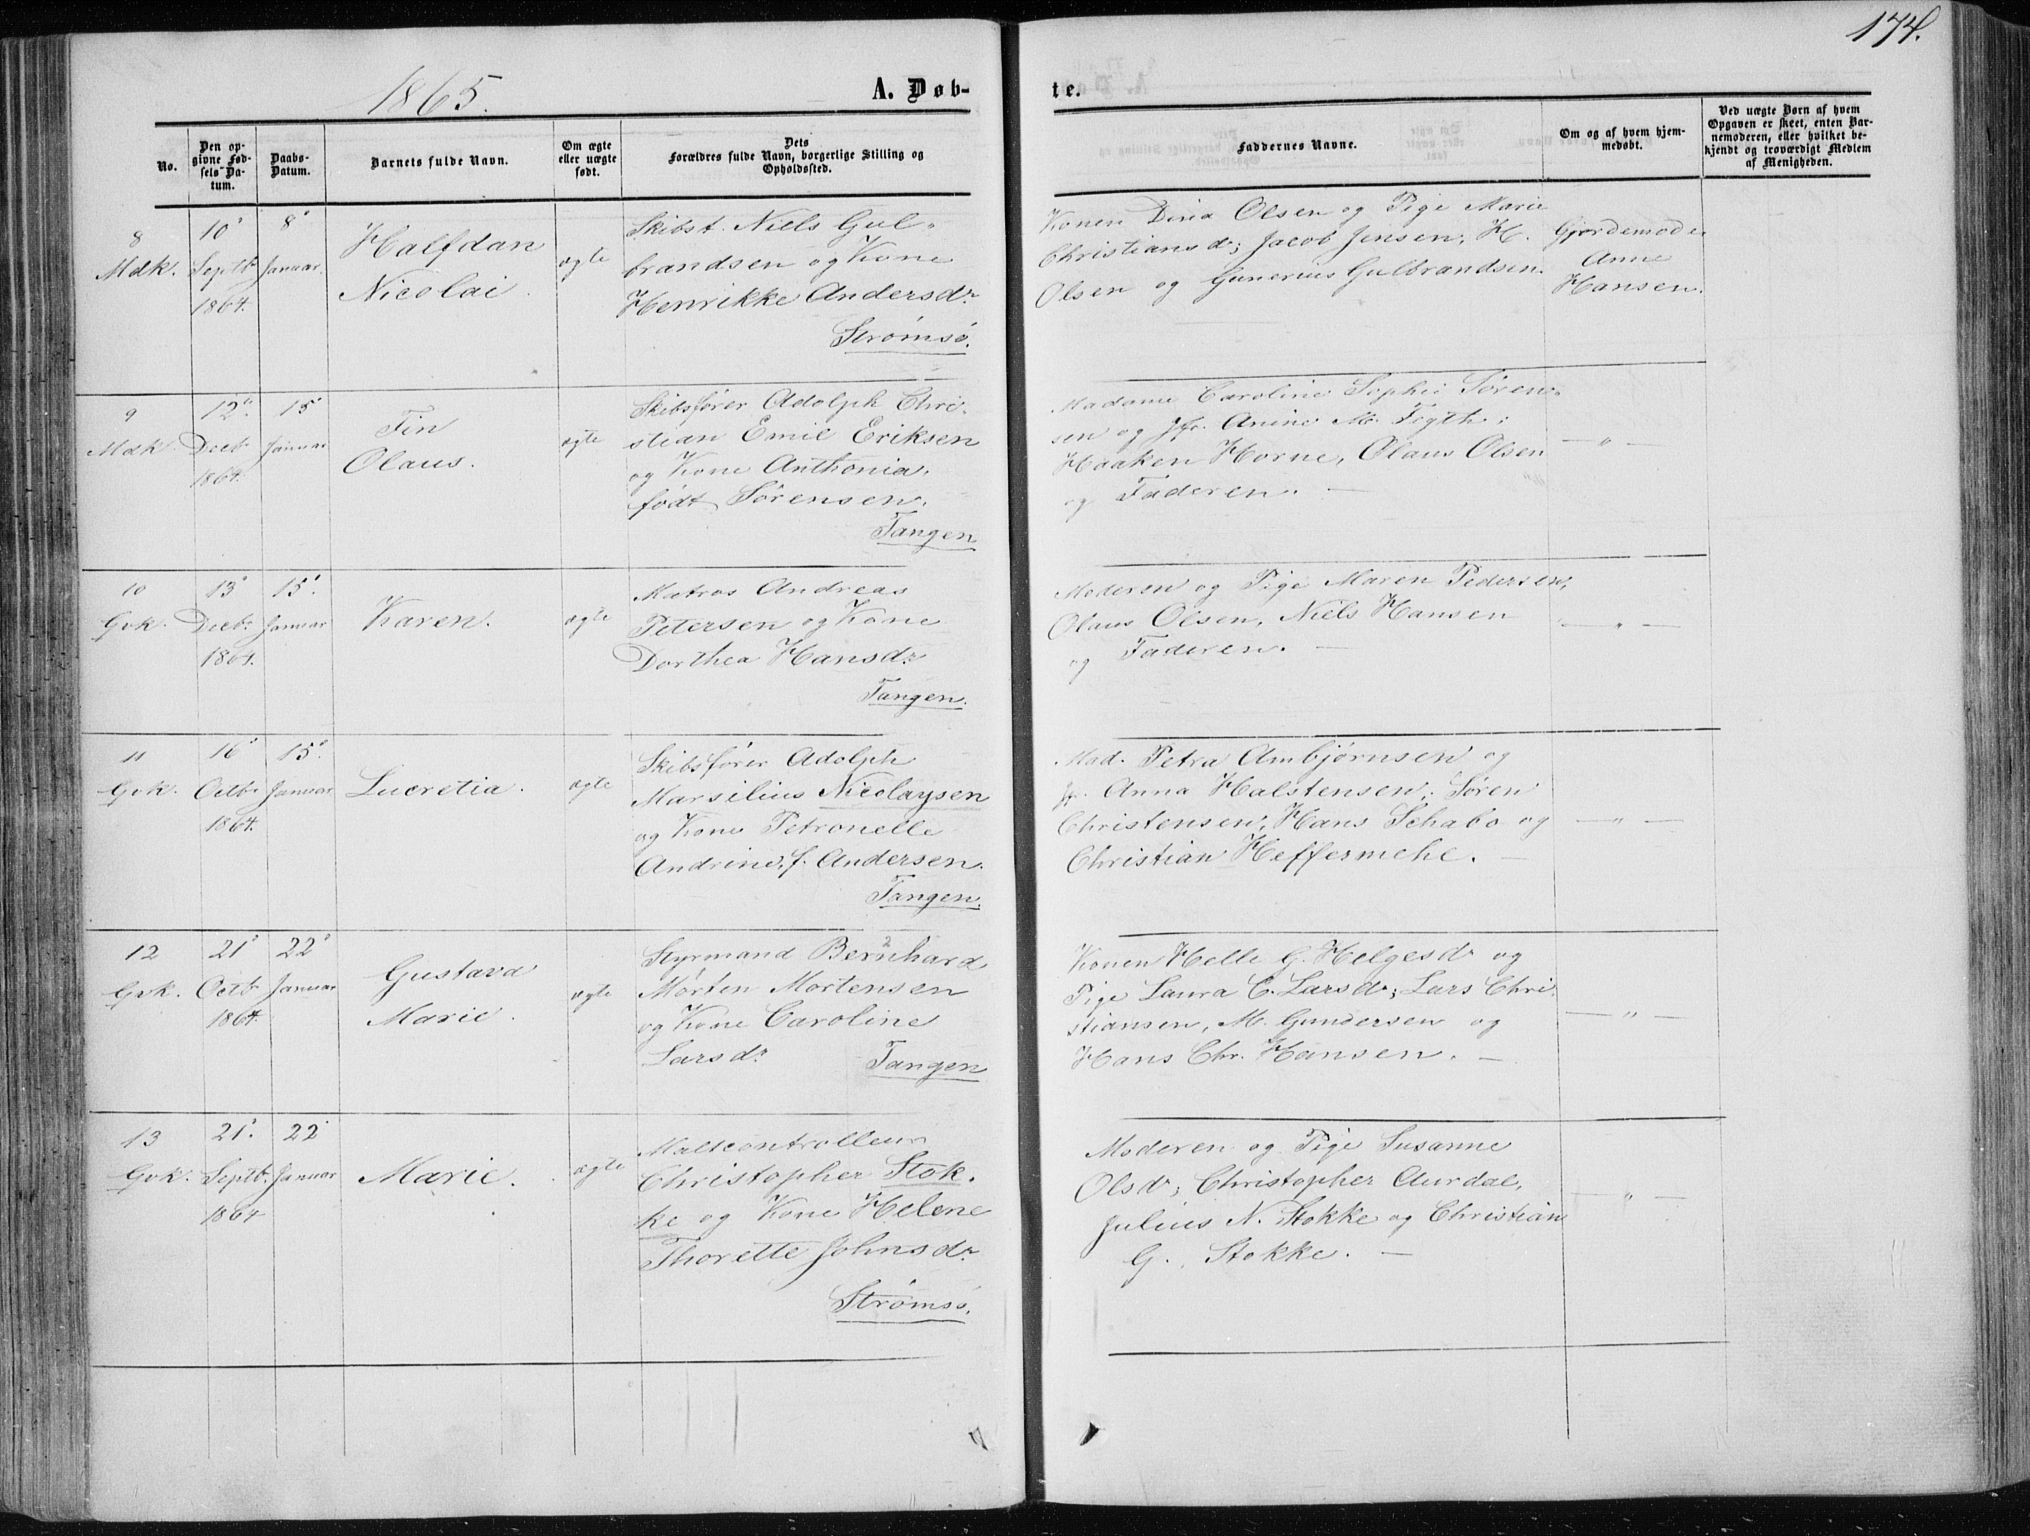 174.
1865.
A. Døb-
te.
No.
Den op-
givne Fød-
sels Da-
tum.
Daabs-
Datum.
Barnets fulde Navn.
Om ægte
eller uægte
født.
Dets
Forældres fulde Navn, borgerlige Stilling og
Opholdssted.
Faddernes Navne.
Om og af hvem hjem-
medøbt.
Ved uægte Børn af hvem
Opgaven er skeet, enten Bar-
nemoderen, eller hvilket be-
kjendt og troværdigt Medlem
af Menigheden.
8
Mdk.
10
Septb
1864.
8
Januar.
Halfdan
Nicolai
ægte
Skibst. Niels Gul-
brandsen og Kone
Henrikke Andersdr
Strømsø.
Konen Dina Olsen og Pige Marie
Christiansdr; Jacob Jensen, H.
Olsen og Gunerius Gulbrandsen.
Gjordemoder
Anne
Hansen.
9
Mdk.
12
Decb
1864.
15
Januar
Fin
Olaus.
ægte
Skibsfører Adolph Chri-
stian Emil Eriksen
og Kone Anthonia,
født Sørensen.
Tangen
Madame Caroline Sophie Søren-
sen og Jfr. Anine M.
Haaken Horne, Olaus Olsen
og Faderen. —
— " —
10
Gvk.
13
Decbr
1864.
15.
Januar
Karen.
ægte
Matros Andreas
Petersen og Kone
Dorthea Hansdr
Tangen.
Moderen og Pige Maren Pedersen,
Olaus Olsen, Niels Hansen
og Faderen. —
— " —
11
Gvk.
16
Octbr
1864.
15.
Januar
Lucretia.
ægte
Skibsfører Adolph
Marsilius Nicolaysen
og Kone Petronelle
Andrine, f. Andersen.
Tangen.
Mad. Petra Ambjørnsen og
Jfr. Anna Halstensen; Søren
Christensen, Hans Schabo og
Christian Heffermehl. —
— " —
12
Gvk.
21
Octb
1864.
22
Januar
Gustava
Marie.
ægte
Styrmand Bernhard
Morten Mortensen
og Kone Caroline
Larsdr
Tangen
Konen Helle G. Helgesdr og
Pige Laura C. Larsdr; Lars Chri-
stiansen, M. Gundersen og
Hans Chr. Hansen. —
— " —
13
Gvk.
21.
Septb.
1864
22
Januar
Marie.
ægte
Maltcontrolleur
Christopher Stok-
ke og Kone Helene
Thorette Johnsdr
Strømsø.
Moderen og Pige Susanne
Olsdr; Christopher Aurdal,
Julius N. Stokke og Christian
G. Stokke. —
— " —